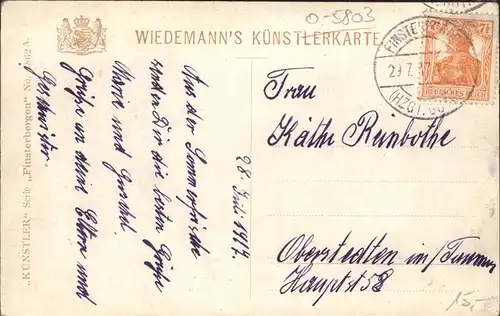 O-5803
WIEDEMANN'S KÜNSTLERKARTE
7½
DEUTSCHES REICH
29.7.
(HZGT.
"KÜNSTLER" Serie "Finsterbergen" No.
Aus der Sommerfrische
senden Dir die besten Grüße
Marie und
Grüße an deine Eltern und
Geschwister.
28. Juli 1917.
Frau
Käthe Reinbothe
Oberstedten im/Taunus
Hauptst 58
15,-